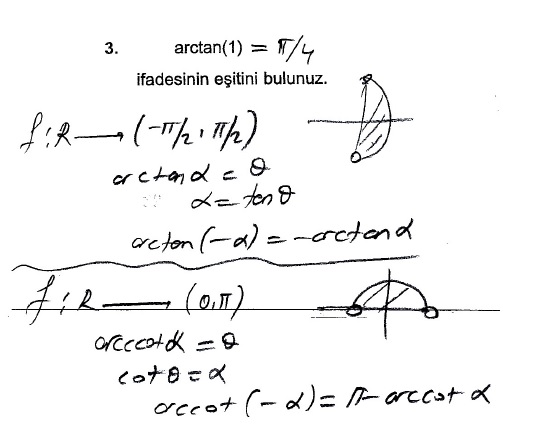 3. arctan(1) = π/4
ifadesinin eşitini bulunuz.
f:R → (-π/2, π/2)
arctanα = θ
α = tanθ
arctan(-α) = -arctanα
f:R → (0,π)
arccotα = θ
cotθ = α
arccot(-α) = π-arccotα